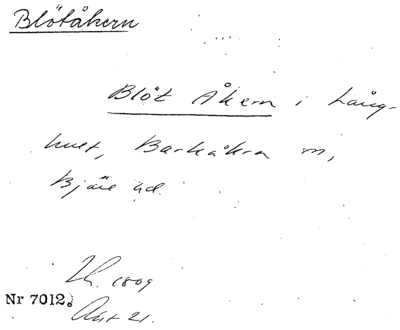 Blötåkern
Blöt Åkern i Lång-
hult, Barkåkra sn,
Bjäre hd.
Lh. 1809
Nr 7012.
Akt 21.